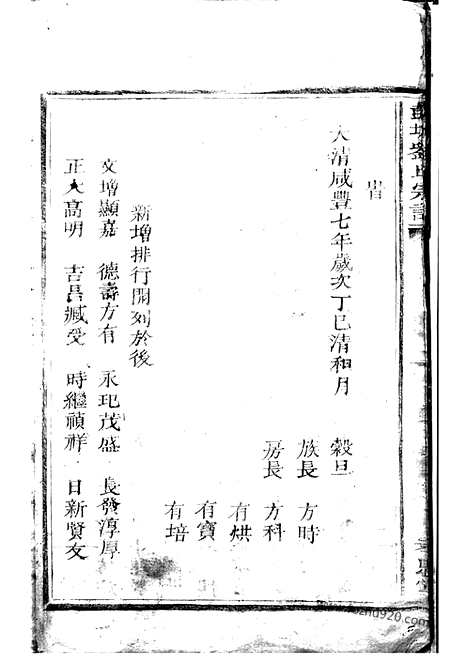 彭城劉氏宗譜
旹
大清咸豐七年歲次丁巳清和月 穀旦
族長 方時
房長 方科
有烘
有寶
有培
新增排行開列於後
文增顯嘉 德壽方有 永玘茂盛 長發淳厚
正大高明 吉昌臧受 時繼禎祥 日新賢友